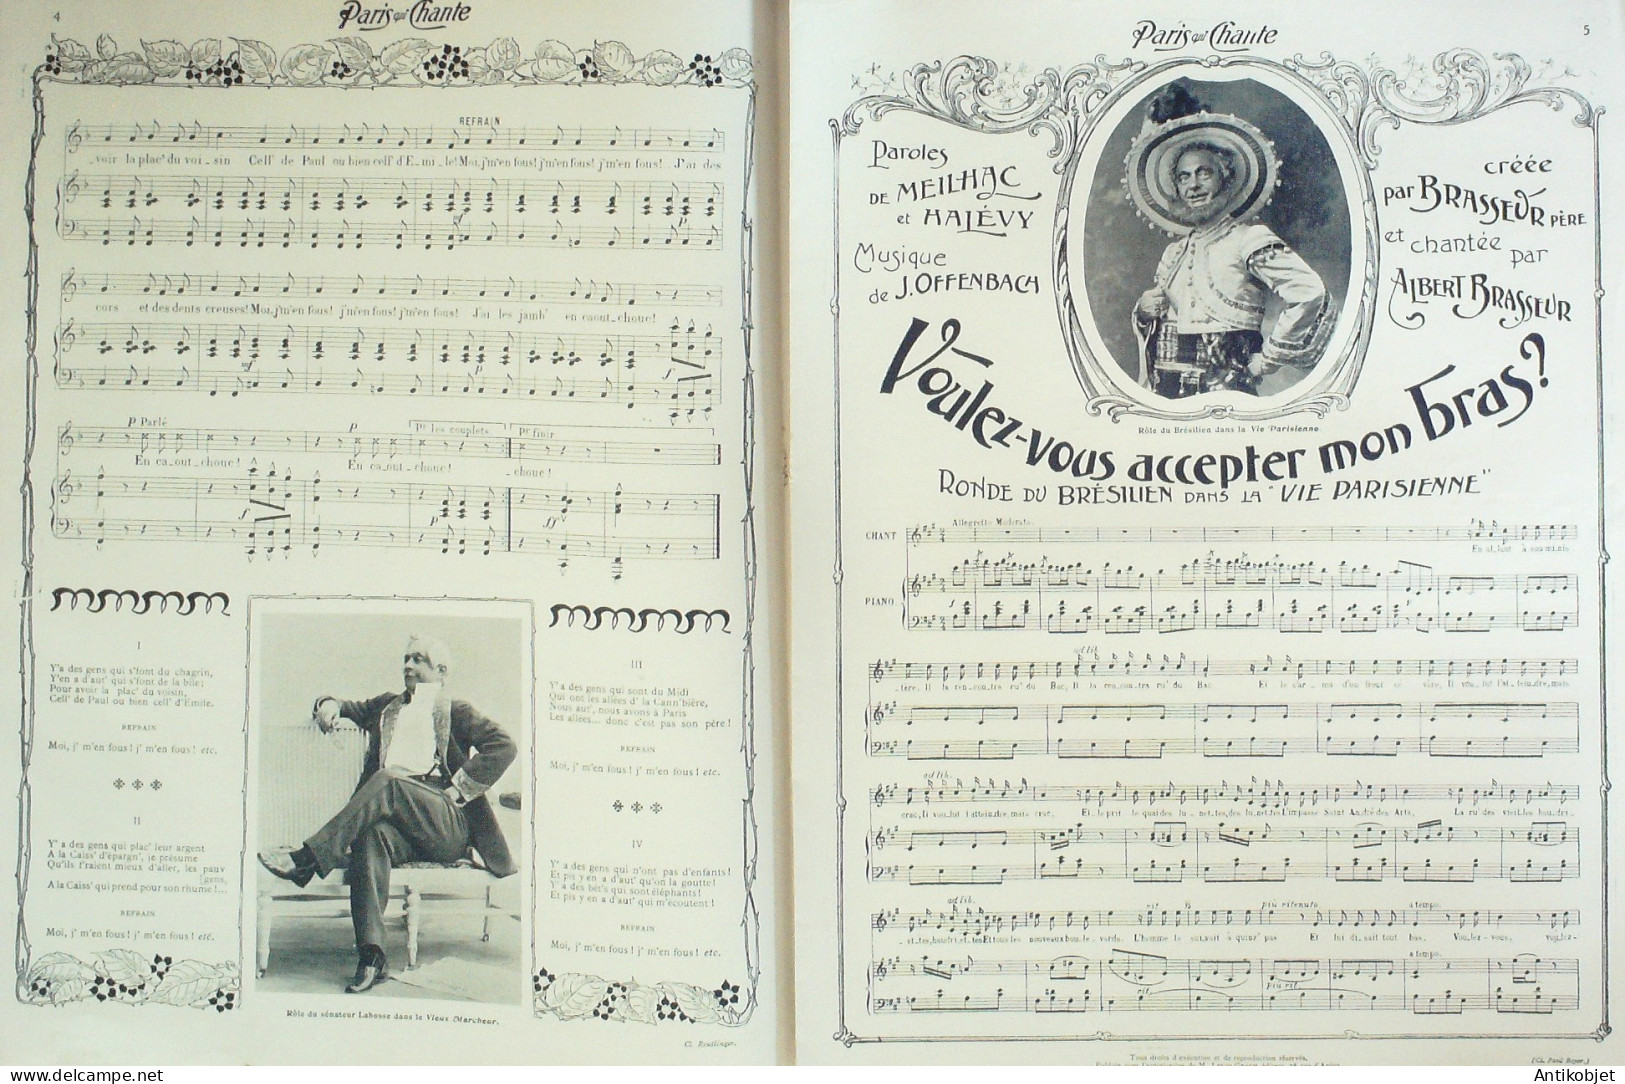 4
Paris qui Chante
REFRAIN
_voir la plac' du voi_sin Cell' de Paul ou bien cell' d'E_mi_le! Moi, j'm'en fous! j'm'en fous! j'm'en fous! J'ai des
cors et des dents creuses! Moi, j'm'en fous! j'm'en fous! j'm'en fous! J'ai les jamb' en caout_chouc!
mf
p
f
p Parlé
p
Pr les couplets
Pr finir
En ca_out_chouc!
En ca_out_chouc!
_chouc!
p
ff
I
Y'a des gens qui s'font du chagrin,
Y'en a d'aut' qui s'font de la bile;
Pour avoir la plac' du voisin,
Cell' de Paul ou bien cell' d'Émile.
REFRAIN
Moi, j' m'en fous! j' m'en fous! etc.
II
Y' a des gens qui plac' leur argent
A la Caiss' d'épargn', je présume
Qu'ils f'raient mieux d'aller, les pauv
[gens,
A la Caiss' qui prend pour son rhume!...
REFRAIN
Moi, j' m'en fous! j' m'en fous! etc.
Rôle du sénateur Labosse dans le Vieux Marcheur.
III
Y' a des gens qui sont du Midi
Qui ont les allées d' la Cann'bière,
Nous aut', nous avons à Paris
Les allées... donc c'est pas son père!
REFRAIN
Moi, j' m'en fous! j' m'en fous! etc.
IV
Y' a des gens qui n'ont pas d'enfants!
Et pis y en a d'aut' qu'on la goutte!
Y' a des bét's qui sont éléphants!
Et pis y en a d'aut' qui m'écoutent!
REFRAIN
Moi, j' m'en fous! j' m'en fous! etc.
Cl. Reutlinger.
Paris qui Chante
5
Paroles
DE MEILHAC
et HALÉVY
Musique
de J. OFFENBACH
créée
par BRASSEUR PÈRE
et chantée
par
ALBERT BRASSEUR
Rôle du Brésilien dans la Vie Parisienne.
Voulez-vous accepter mon bras?
RONDE DU BRÉSILIEN DANS LA "VIE PARISIENNE"
Allegretto Moderato.
CHANT
En al_lant à son mi_nis
PIANO
ad lib.
_tère, Il la ren_con_tra ru' du Bac, Il la ren_con_tra ru' du Bac
ad lib.
crac, Il vou_lut l'attein_dre, mais crac, El_le prit le quai des lu_net_tes, des lu_net_tes L'impasse Saint André des Arts, La ru' des vieil_les haudri_
ad lib.
rit.
più ritenuto.
a tempo.
_et_tes, haudri_et_tes Et tous les nouveaux bou_le_vards. L'homme le sui_vait à quinz' pas Et lui di_sait tout bas. Vou_lez_vous, vou_lez_
rit.
più rit.
a tempo.
Tous droits d'exécution et de reproduction réservés.
(Cl. Paul Boyer.)
Antikobjet